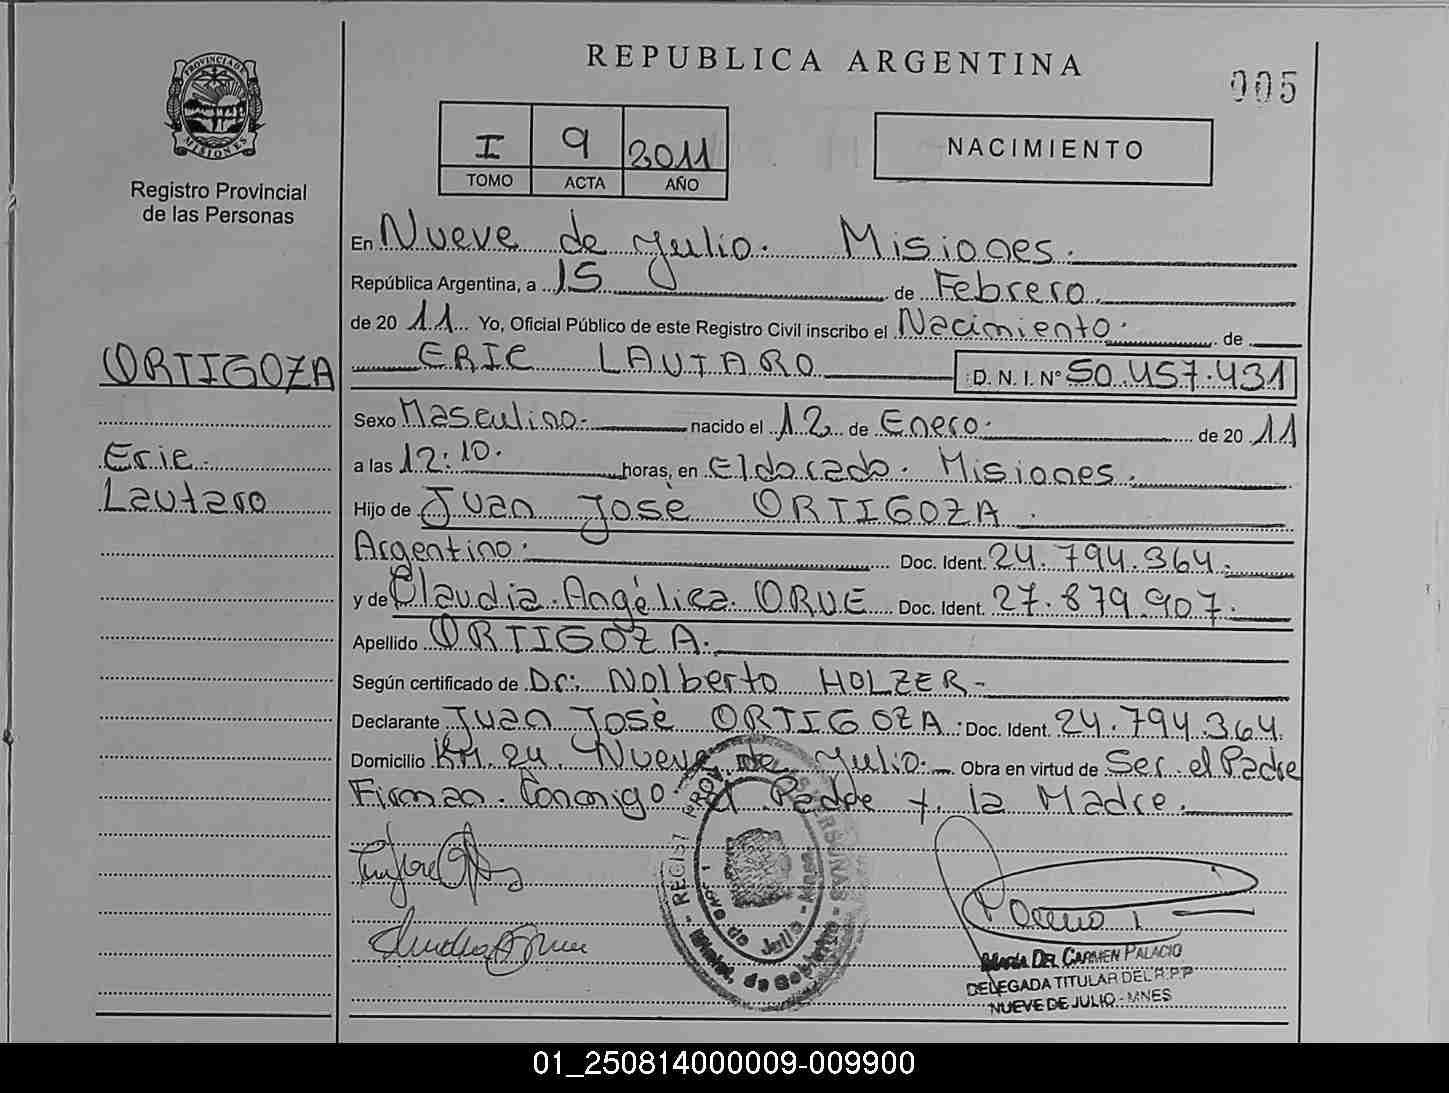 REPUBLICA ARGENTINA
005
PROVINCIA DE
MISIONES
Registro Provincial
de las Personas
I 9 2011
TOMO ACTA AÑO
NACIMIENTO
En Nueve de Julio. Misiones.
República Argentina, a 15 de Febrero
de 20 11 Yo, Oficial Público de este Registro Civil inscribo el Nacimiento. de
ERIC LAUTARO D. N. I. N° 50.457.431
ORTIGOZA
Eric
Lautaro
Sexo Masculino. nacido el 12 de Enero. de 20 11
a las 12:10. horas, en Eldorado. Misiones.
Hijo de Juan Josè ORTIGOZA
Argentino. Doc. Ident. 24.794.364.
y de Claudia Angélica ORUE Doc. Ident. 27.879.907.
Apellido ORTIGOZA.
Según certificado de Dr: Nolberto HOLZER-
Declarante Juan Josè ORTIGOZA. Doc. Ident. 24.794.364.
Domicilio KM. 24. Nueve de Julio. Obra en virtud de Ser el Padre
Firman Conmigo el Padre y la Madre.
MARÍA DEL CARMEN PALACIO
DELEGADA TITULAR DEL R.P.P
NUEVE DE JULIO - MNES
01_250814000009-009900